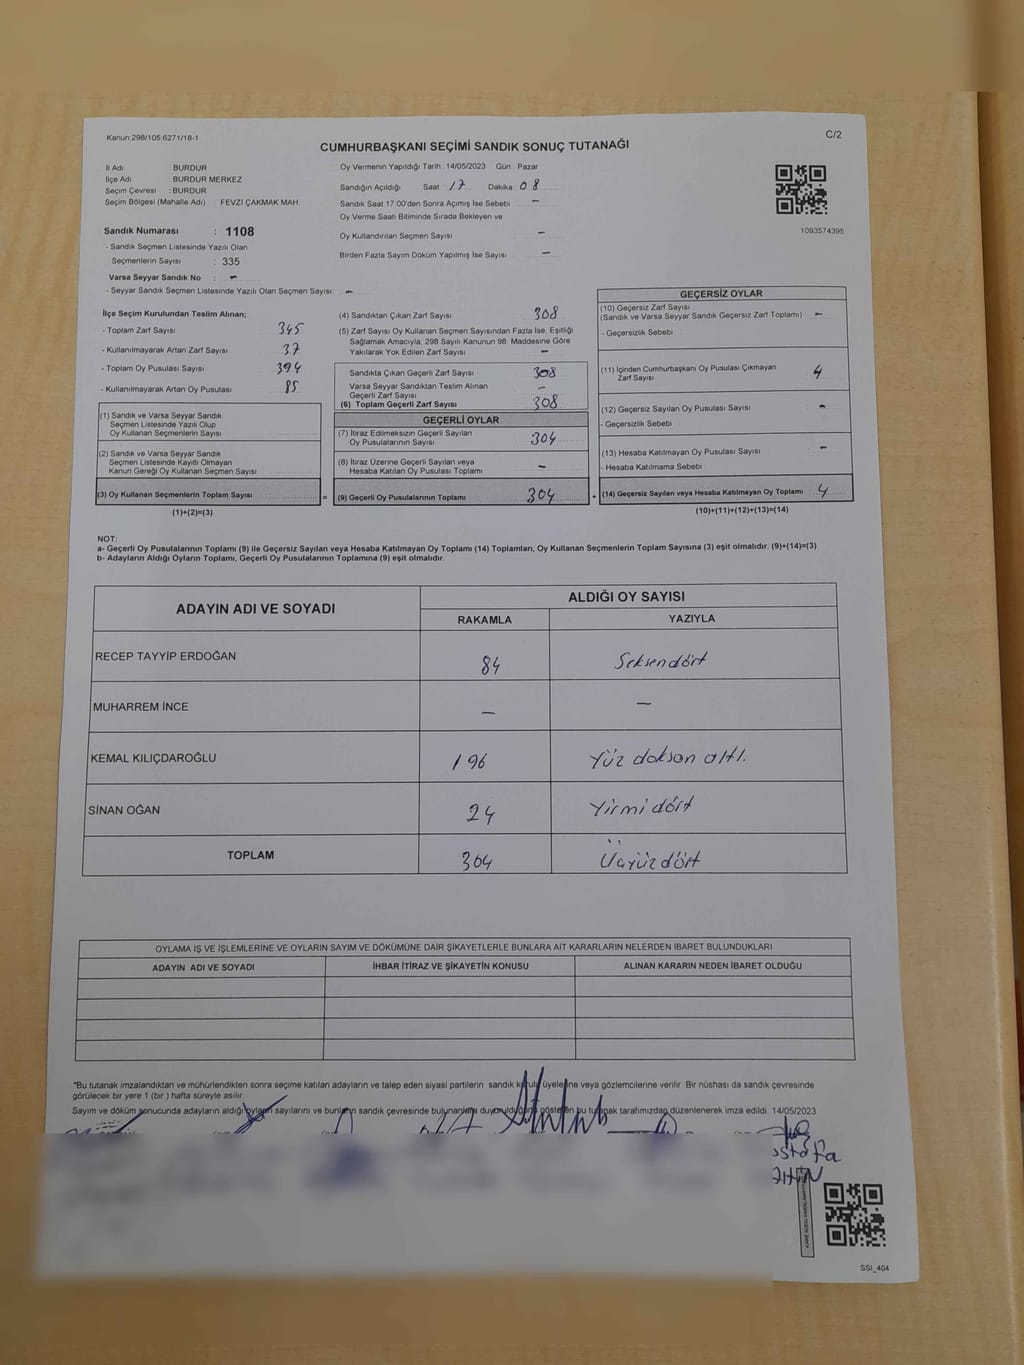 Kanun;298/105;6271/18-1
C/2
CUMHURBAŞKANI SEÇİMİ SANDIK SONUÇ TUTANAĞI
İl Adı BURDUR
İlçe Adı : BURDUR MERKEZ
Seçim Çevresi : BURDUR
Seçim Bölgesi (Mahalle Adı) : FEVZİ ÇAKMAK MAH.
Sandık Numarası : 1108
- Sandık Seçmen Listesinde Yazılı Olan
Seçmenlerin Sayısı : 335
Varsa Seyyar Sandık No : -
- Seyyar Sandık Seçmen Listesinde Yazılı Olan Seçmen Sayısı: -
Oy Vermenin Yapıldığı Tarih : 14/05/2023 Gün : Pazar
Sandığın Açıldığı Saat : 17 Dakika : 08
Sandık Saat 17:00'den Sonra Açımış İse Sebebi -
Oy Verme Saati Bitiminde Sırada Bekleyen ve
Oy Kullandırılan Seçmen Sayısı -
Birden Fazla Sayım Döküm Yapılmış İse Sayısı -
1093574395
İlçe Seçim Kurulundan Teslim Alınan;
- Toplam Zarf Sayısı 345
- Kullanılmayarak Artan Zarf Sayısı 37
- Toplam Oy Pusulası Sayısı 394
- Kullanılmayarak Artan Oy Pusulası 85
(1) Sandık ve Varsa Seyyar Sandık
Seçmen Listesinde Yazılı Olup
Oy Kullanan Seçmenlerin Sayısı
(2) Sandık ve Varsa Seyyar Sandık
Seçmen Listesinde Kayıtlı Olmayan
Kanun Gereği Oy Kullanan Seçmen Sayısı
(3) Oy Kullanan Seçmenlerin Toplam Sayısı =
(1)+(2)=(3)
(4) Sandıktan Çıkan Zarf Sayısı 308
(5) Zarf Sayısı Oy Kullanan Seçmen Sayısından Fazla İse, Eşitliği
Sağlamak Amacıyla, 298 Sayılı Kanunun 98. Maddesine Göre
Yakılarak Yok Edilen Zarf Sayısı -
Sandıkta Çıkan Geçerli Zarf Sayısı 308
Varsa Seyyar Sandıktan Teslim Alınan
Geçerli Zarf Sayısı -
(6) Toplam Geçerli Zarf Sayısı 308
GEÇERLİ OYLAR
(7) İtiraz Edilmeksizin Geçerli Sayılan
Oy Pusulalarının Sayısı 304
(8) İtiraz Üzerine Geçerli Sayılan veya
Hesaba Katılan Oy Pusulası Toplamı -
(9) Geçerli Oy Pusulalarının Toplamı 304 +
GEÇERSİZ OYLAR
(10) Geçersiz Zarf Sayısı
(Sandık ve Varsa Seyyar Sandık Geçersiz Zarf Toplamı) -
- Geçersizlik Sebebi
(11) İçinden Cumhurbaşkanı Oy Pusulası Çıkmayan
Zarf Sayısı 4
(12) Geçersiz Sayılan Oy Pusulası Sayısı -
- Geçersizlik Sebebi
(13) Hesaba Katılmayan Oy Pusulası Sayısı -
- Hesaba Katılmama Sebebi
(14) Geçersiz Sayılan veya Hesaba Katılmayan Oy Toplamı 4
(10)+(11)+(12)+(13)=(14)
NOT:
a- Geçerli Oy Pusulalarının Toplamı (9) ile Geçersiz Sayılan veya Hesaba Katılmayan Oy Toplamı (14) Toplamları, Oy Kullanan Seçmenlerin Toplam Sayısına (3) eşit olmalıdır. (9)+(14)=(3)
b- Adayların Aldığı Oyların Toplamı, Geçerli Oy Pusulalarının Toplamına (9) eşit olmalıdır.
ADAYIN ADI VE SOYADI ALDIĞI OY SAYISI
RAKAMLA YAZIYLA
RECEP TAYYİP ERDOĞAN 84 Seksendört
MUHARREM İNCE - -
KEMAL KILIÇDAROĞLU 196 Yüz doksan altı.
SİNAN OĞAN 24 Yirmi dört
TOPLAM 304 Üçyüz dört
OYLAMA İŞ VE İŞLEMLERİNE VE OYLARIN SAYIM VE DÖKÜMÜNE DAİR ŞİKAYETLERLE BUNLARA AİT KARARLARIN NELERDEN İBARET BULUNDUKLARI
ADAYIN ADI VE SOYADI İHBAR İTİRAZ VE ŞİKAYETİN KONUSU ALINAN KARARIN NEDEN İBARET OLDUĞU
*Bu tutanak imzalandıktan ve mühürlendikten sonra seçime katılan adayların ve talep eden siyasi partilerin sandık kurulu üyelerine veya gözlemcilerine verilir. Bir nüshası da sandık çevresinde
görülecek bir yere 1 (bir) hafta süreyle asılır.
Sayım ve döküm sonucunda adayların aldığı oyların sayılarını ve bunların sandık çevresinde bulunanlara duyurulduğunu gösteren bu tutanak tarafımızdan düzenlenerek imza edildi. 14/05/2023
SSI_404